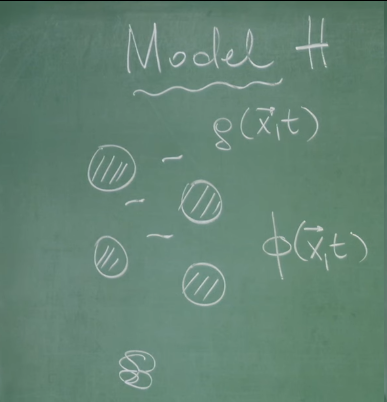 Model H
ϱ(x⃗,t)
ϕ(x⃗,t)